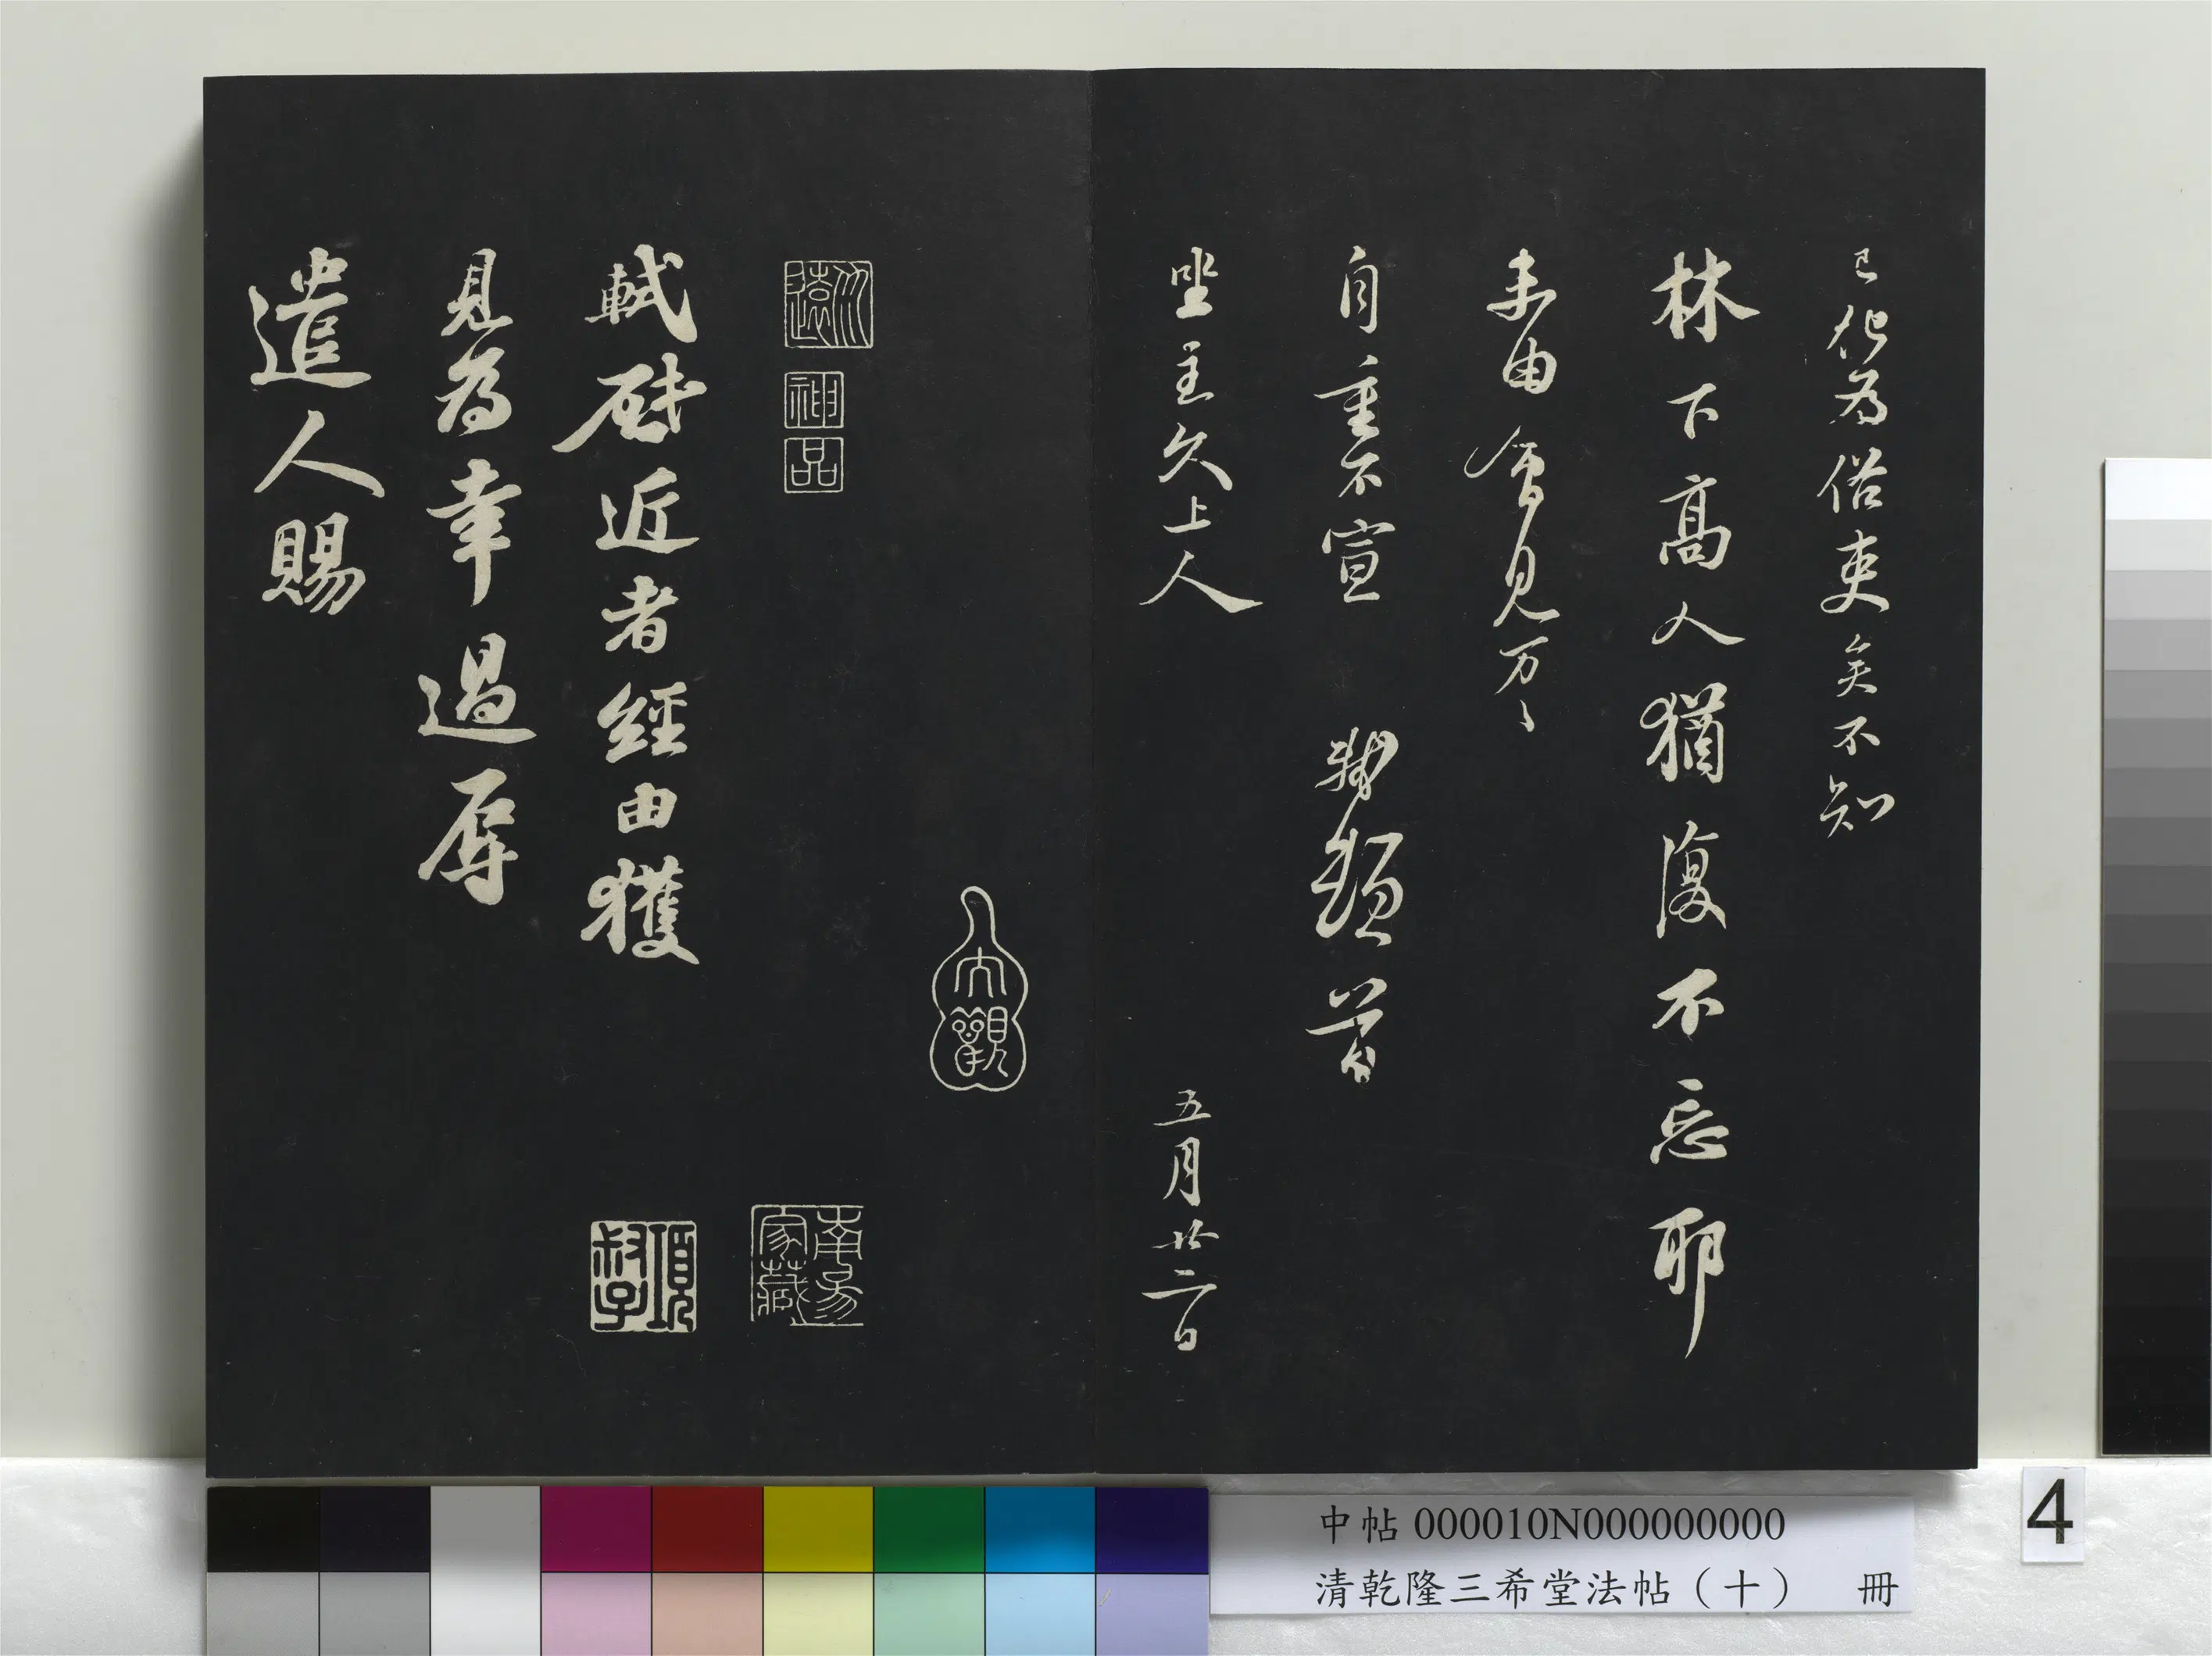 已化為俗吏矣不知
林下高人猶復不忘耶
未由會見万々
自重不宣 軾頓首
坐主久上人 五月廿二日
大觀
神品
南昜家藏
軾啟近者經由獲
見為幸過辱
遣人賜
項叔子
中帖 000010N000000000
清乾隆三希堂法帖（十） 冊
4